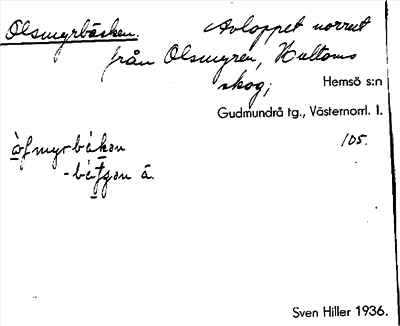 Olsmyrbäcken. Avloppet norrut
från Olsmyren, Hultoms
skog;
Hemsö s:n
Gudmundrå tg., Västernorrl. l.
105.
Sven Hiller 1936.